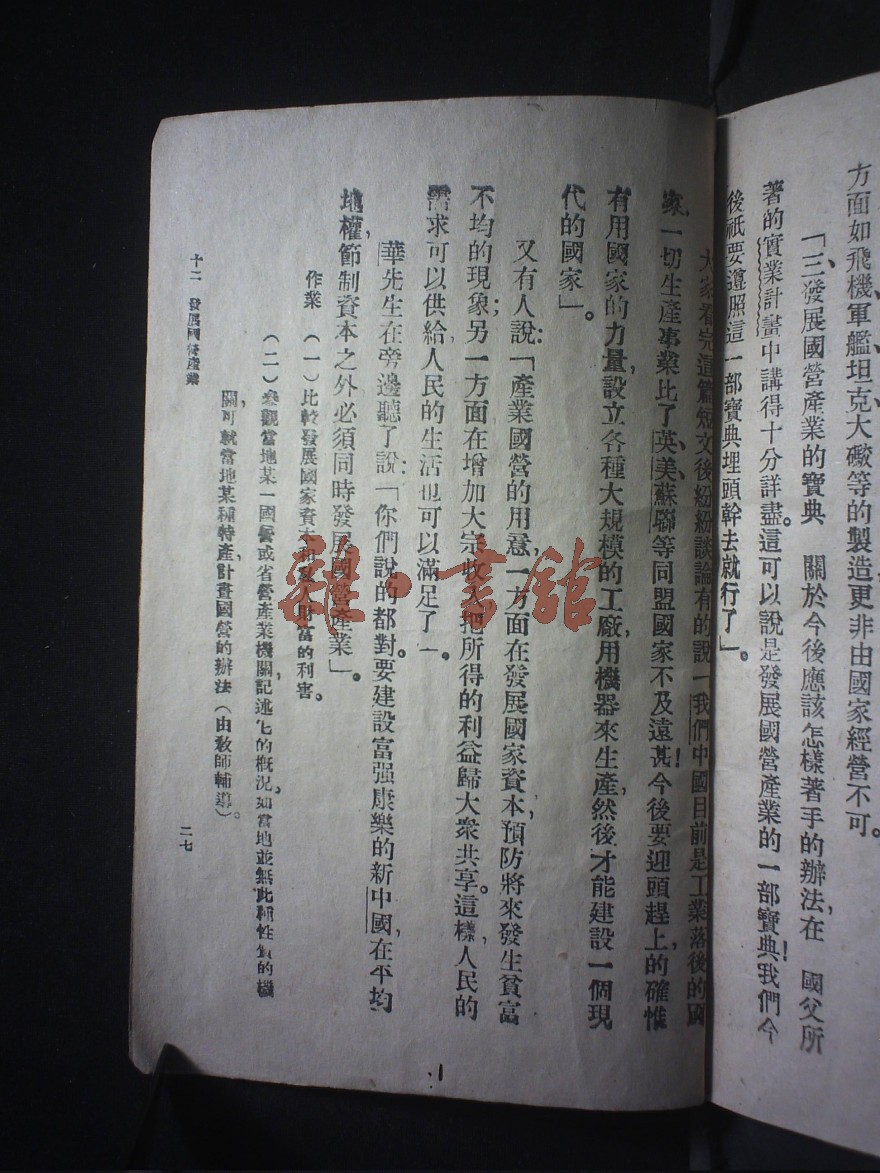 方面如飛機、軍艦、坦克、大礮等的製造更非由國家經營不可。
「三、發展國營產業的寶典 關於今後應該怎樣著手的辦法,在 國父所
著的實業計畫中講得十分詳盡。這可以說是發展國營產業的一部寶典!我們今
後祇要遵照這一部寶典埋頭幹去就行了」。
大家看完這篇短文後紛紛談論有的說「我們中國目前是工業落後的國
家,一切生產事業比了英、美、蘇聯等同盟國家不及遠甚!今後要迎頭趕上的確惟
有用國家的力量,設立各種大規模的工廠,用機器來生產,然後才能建設一個現
代的國家」。
又有人說:「產業國營的用意,一方面在發展國家資本,預防將來發生貧富
不均的現象;另一方面在增加大宗收入,把所得的利益歸大衆共享。這樣,人民的
需求可以供給,人民的生活也可以滿足了」。
華先生在旁邊聽了說:「你們說的都對。要建設富强康樂的新中國,在平均
地權,節制資本之外,必須同時發展國營產業」。
作業 (一)比較發展國家資本和私人財富的利害。
(二)參觀當地某一國營或省營產業機關,記述牠的概況。如當地並無此種性質的機
關,可就當地某種特產計畫國營的辦法(由敎師輔導)。
十二 發展國營產業
二七
雜·書館